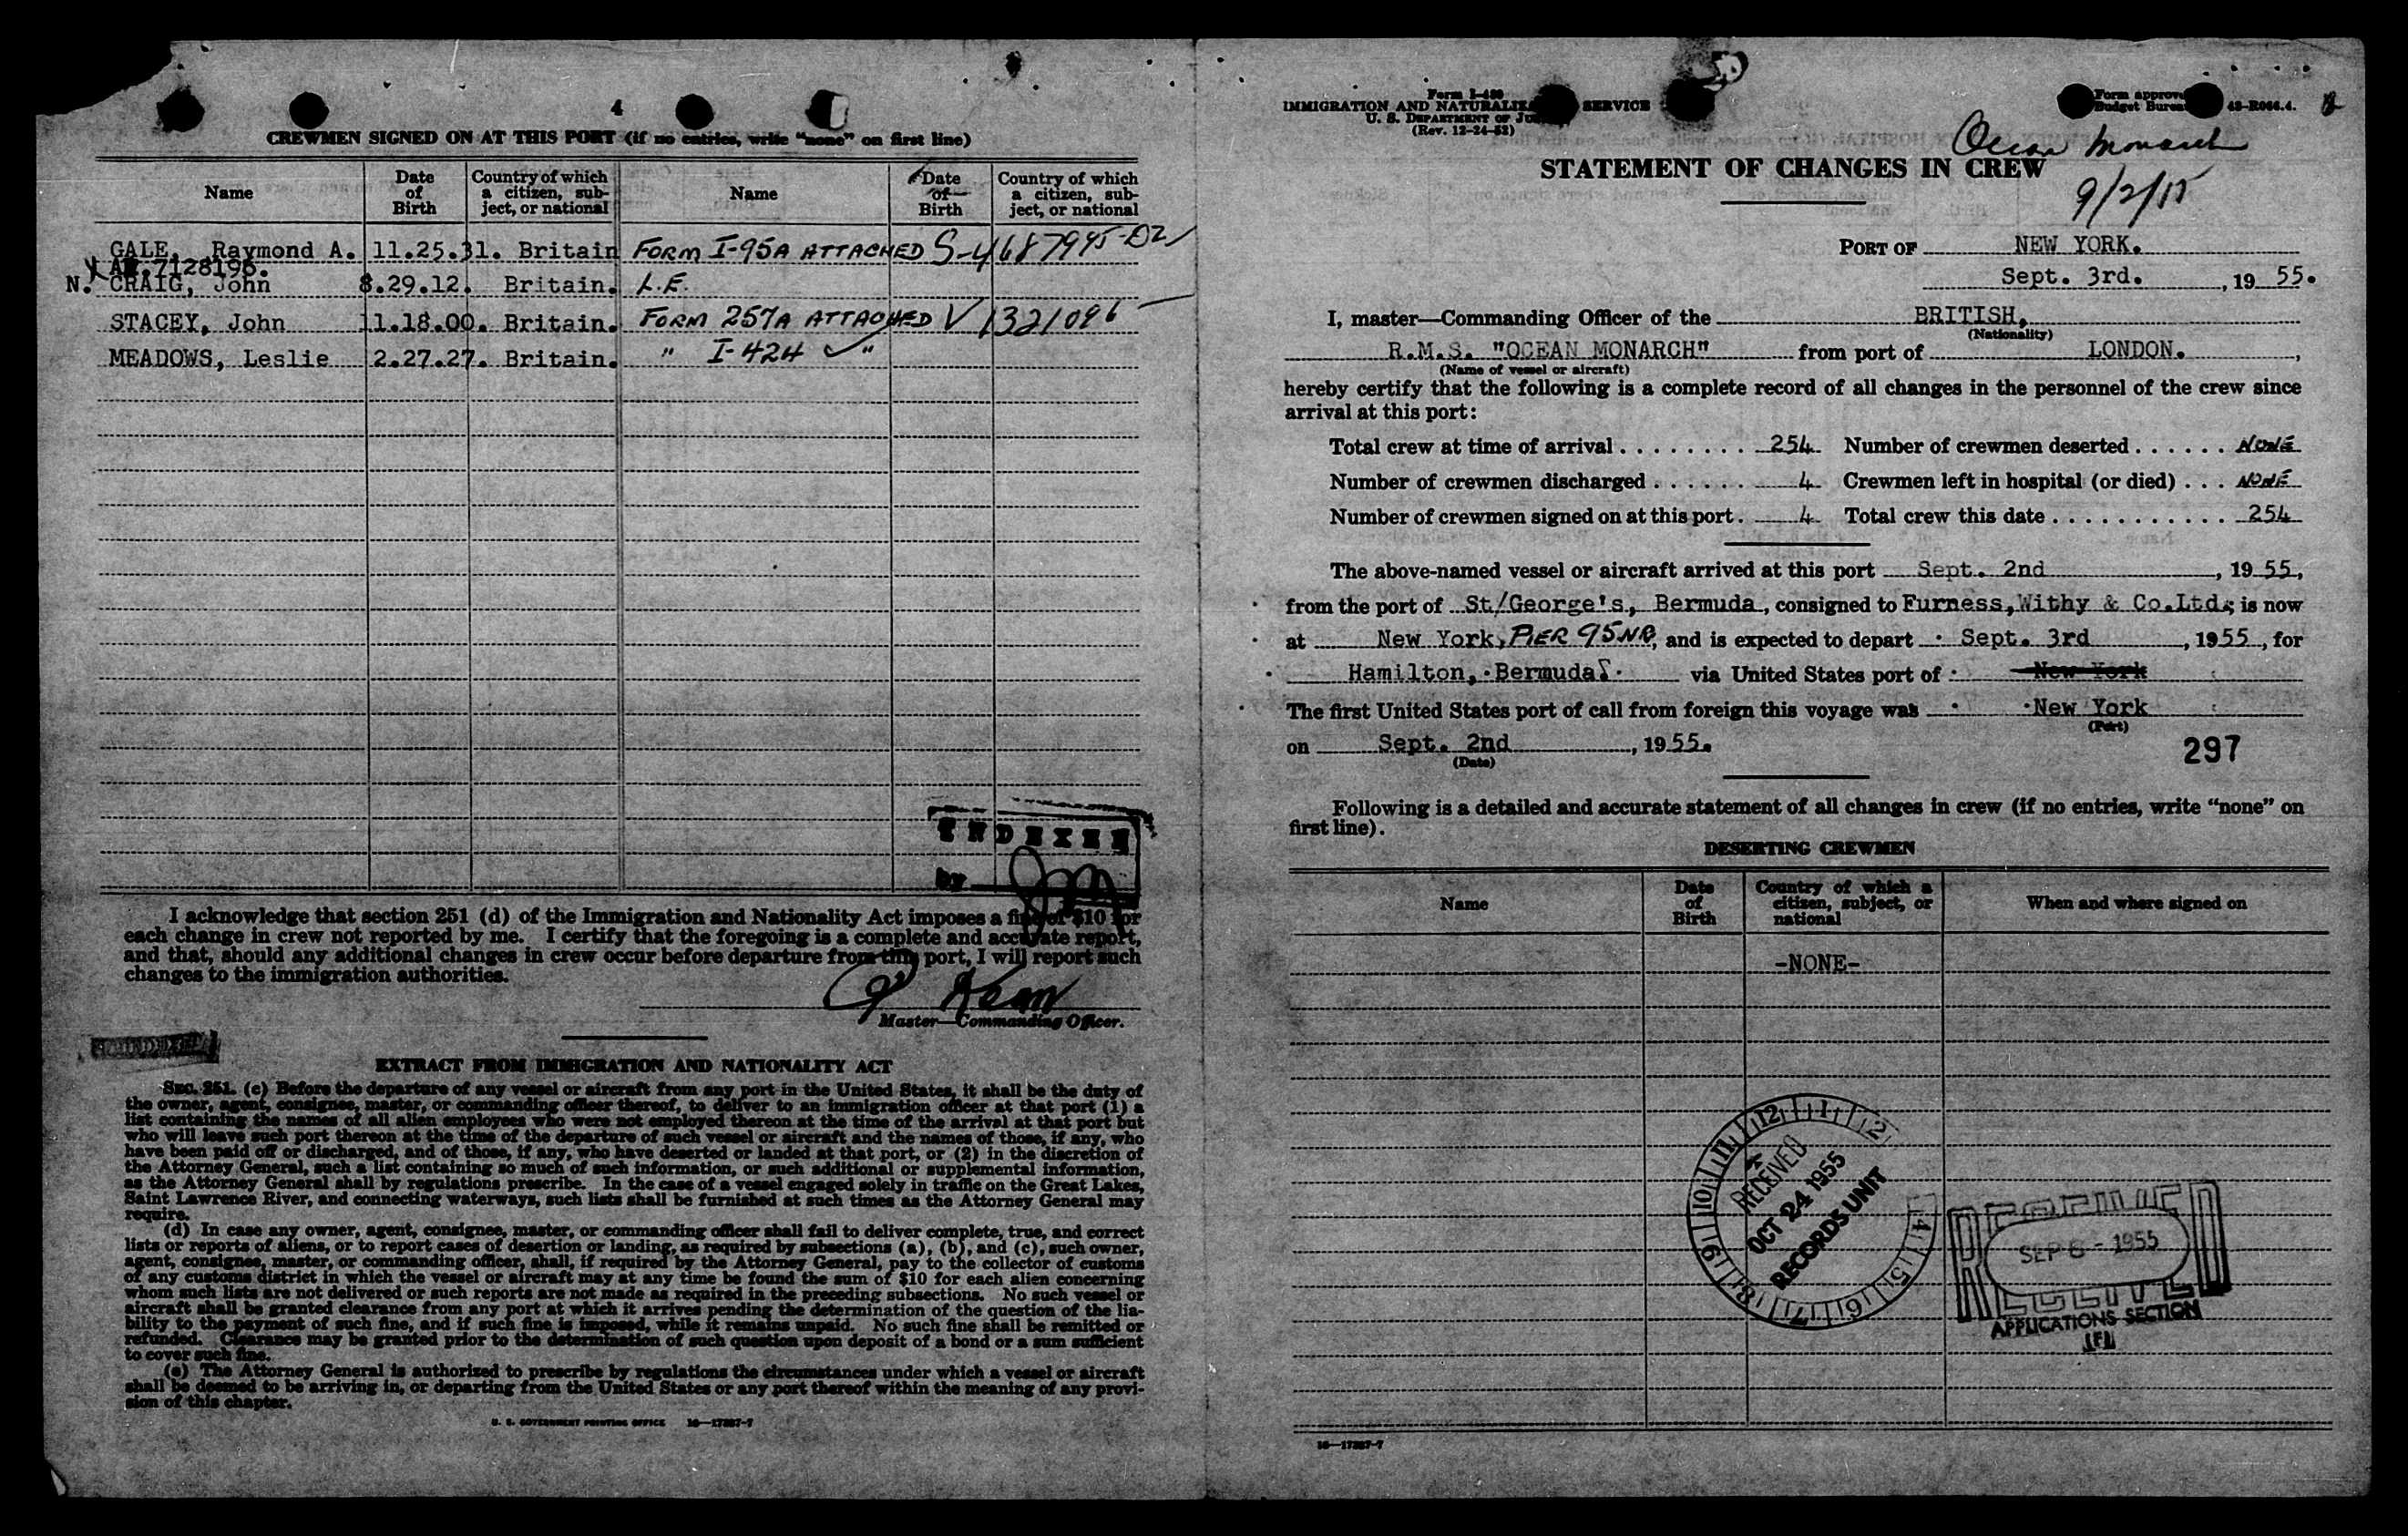 4
CREWMEN SIGNED ON AT THIS PORT (if no entries, write "none" on first line)
Name
Date of Birth
Country of which a citizen, subject, or national
Name
Date of Birth
Country of which a citizen, subject, or national
GALE, Raymond A. 11.25.31. Britain FORM I-95A ATTACHED S-4687995-D2
7128196.
N. CRAIG, John 8.29.12. Britain. L.E.
STACEY, John 11.18.00. Britain. FORM 257A ATTACHED V 1321096
MEADOWS, Leslie 2.27.27. Britain. " I-424 "
INDEXED
by
I acknowledge that section 251 (d) of the Immigration and Nationality Act imposes a fine of $10 for
each change in crew not reported by me. I certify that the foregoing is a complete and accurate report,
and that, should any additional changes in crew occur before departure from this port, I will report such
changes to the immigration authorities.
Master—Commanding Officer.
EXTRACT FROM IMMIGRATION AND NATIONALITY ACT
SEC. 251. (c) Before the departure of any vessel or aircraft from any port in the United States, it shall be the duty of
the owner, agent, consignee, master, or commanding officer thereof, to deliver to an immigration officer at that port (1) a
list containing the names of all alien employees who were not employed thereon at the time of the arrival at that port but
who will leave such port thereon at the time of the departure of such vessel or aircraft and the names of those, if any, who
have been paid off or discharged, and of those, if any, who have deserted or landed at that port, or (2) in the discretion of
the Attorney General, such a list containing so much of such information, or such additional or supplemental information,
as the Attorney General shall by regulations prescribe. In the case of a vessel engaged solely in traffic on the Great Lakes,
Saint Lawrence River, and connecting waterways, such lists shall be furnished at such times as the Attorney General may
require.
(d) In case any owner, agent, consignee, master, or commanding officer shall fail to deliver complete, true, and correct
lists or reports of aliens, or to report cases of desertion or landing, as required by subsections (a), (b), and (c), such owner,
agent, consignee, master, or commanding officer, shall, if required by the Attorney General, pay to the collector of customs
of any customs district in which the vessel or aircraft may at any time be found the sum of $10 for each alien concerning
whom such lists are not delivered or such reports are not made as required in the preceding subsections. No such vessel or
aircraft shall be granted clearance from any port at which it arrives pending the determination of the question of the lia-
bility to the payment of such fine, and if such fine is imposed, while it remains unpaid. No such fine shall be remitted or
refunded. Clearance may be granted prior to the determination of such question upon deposit of a bond or a sum sufficient
to cover such fine.
(e) The Attorney General is authorized to prescribe by regulations the circumstances under which a vessel or aircraft
shall be deemed to be arriving in, or departing from the United States or any port thereof within the meaning of any provi-
sion of this chapter.
U. S. GOVERNMENT PRINTING OFFICE 16—17387-7
Form I-489
IMMIGRATION AND NATURALIZA SERVICE
U. S. DEPARTMENT OF JU
(Rev. 12-24-52)
Form approve
Budget Burea 43-R044.4.
Ocean Monarch
9/2/55
STATEMENT OF CHANGES IN CREW
PORT OF NEW YORK.
Sept. 3rd. , 19 55.
I, master—Commanding Officer of the BRITISH,
(Nationality)
R.M.S. "OCEAN MONARCH" from port of LONDON. ,
(Name of vessel or aircraft)
hereby certify that the following is a complete record of all changes in the personnel of the crew since
arrival at this port:
Total crew at time of arrival . . . . . . . . 254 Number of crewmen deserted . . . . . . NONE
Number of crewmen discharged . . . . . . 4 Crewmen left in hospital (or died) . . . NONE
Number of crewmen signed on at this port. 4 Total crew this date . . . . . . . . . . . 254
The above-named vessel or aircraft arrived at this port Sept. 2nd , 19 55,
from the port of St/George's, Bermuda, consigned to Furness, Withy & Co.Ltd; is now
at New York, PIER 95NR, and is expected to depart Sept. 3rd , 1955, for
Hamilton, Bermuda. via United States port of New York
The first United States port of call from foreign this voyage was New York
(Port)
on Sept. 2nd , 19 55.
(Date)
297
Following is a detailed and accurate statement of all changes in crew (if no entries, write "none" on
first line).
DESERTING CREWMEN
Name
Date of Birth
Country of which a citizen, subject, or national
When and where signed on
-NONE-
RECEIVED
OCT 24 1955
RECORDS UNIT
RECEIVED
SEP 6 - 1955
APPLICATIONS SECTION
16—17387-7